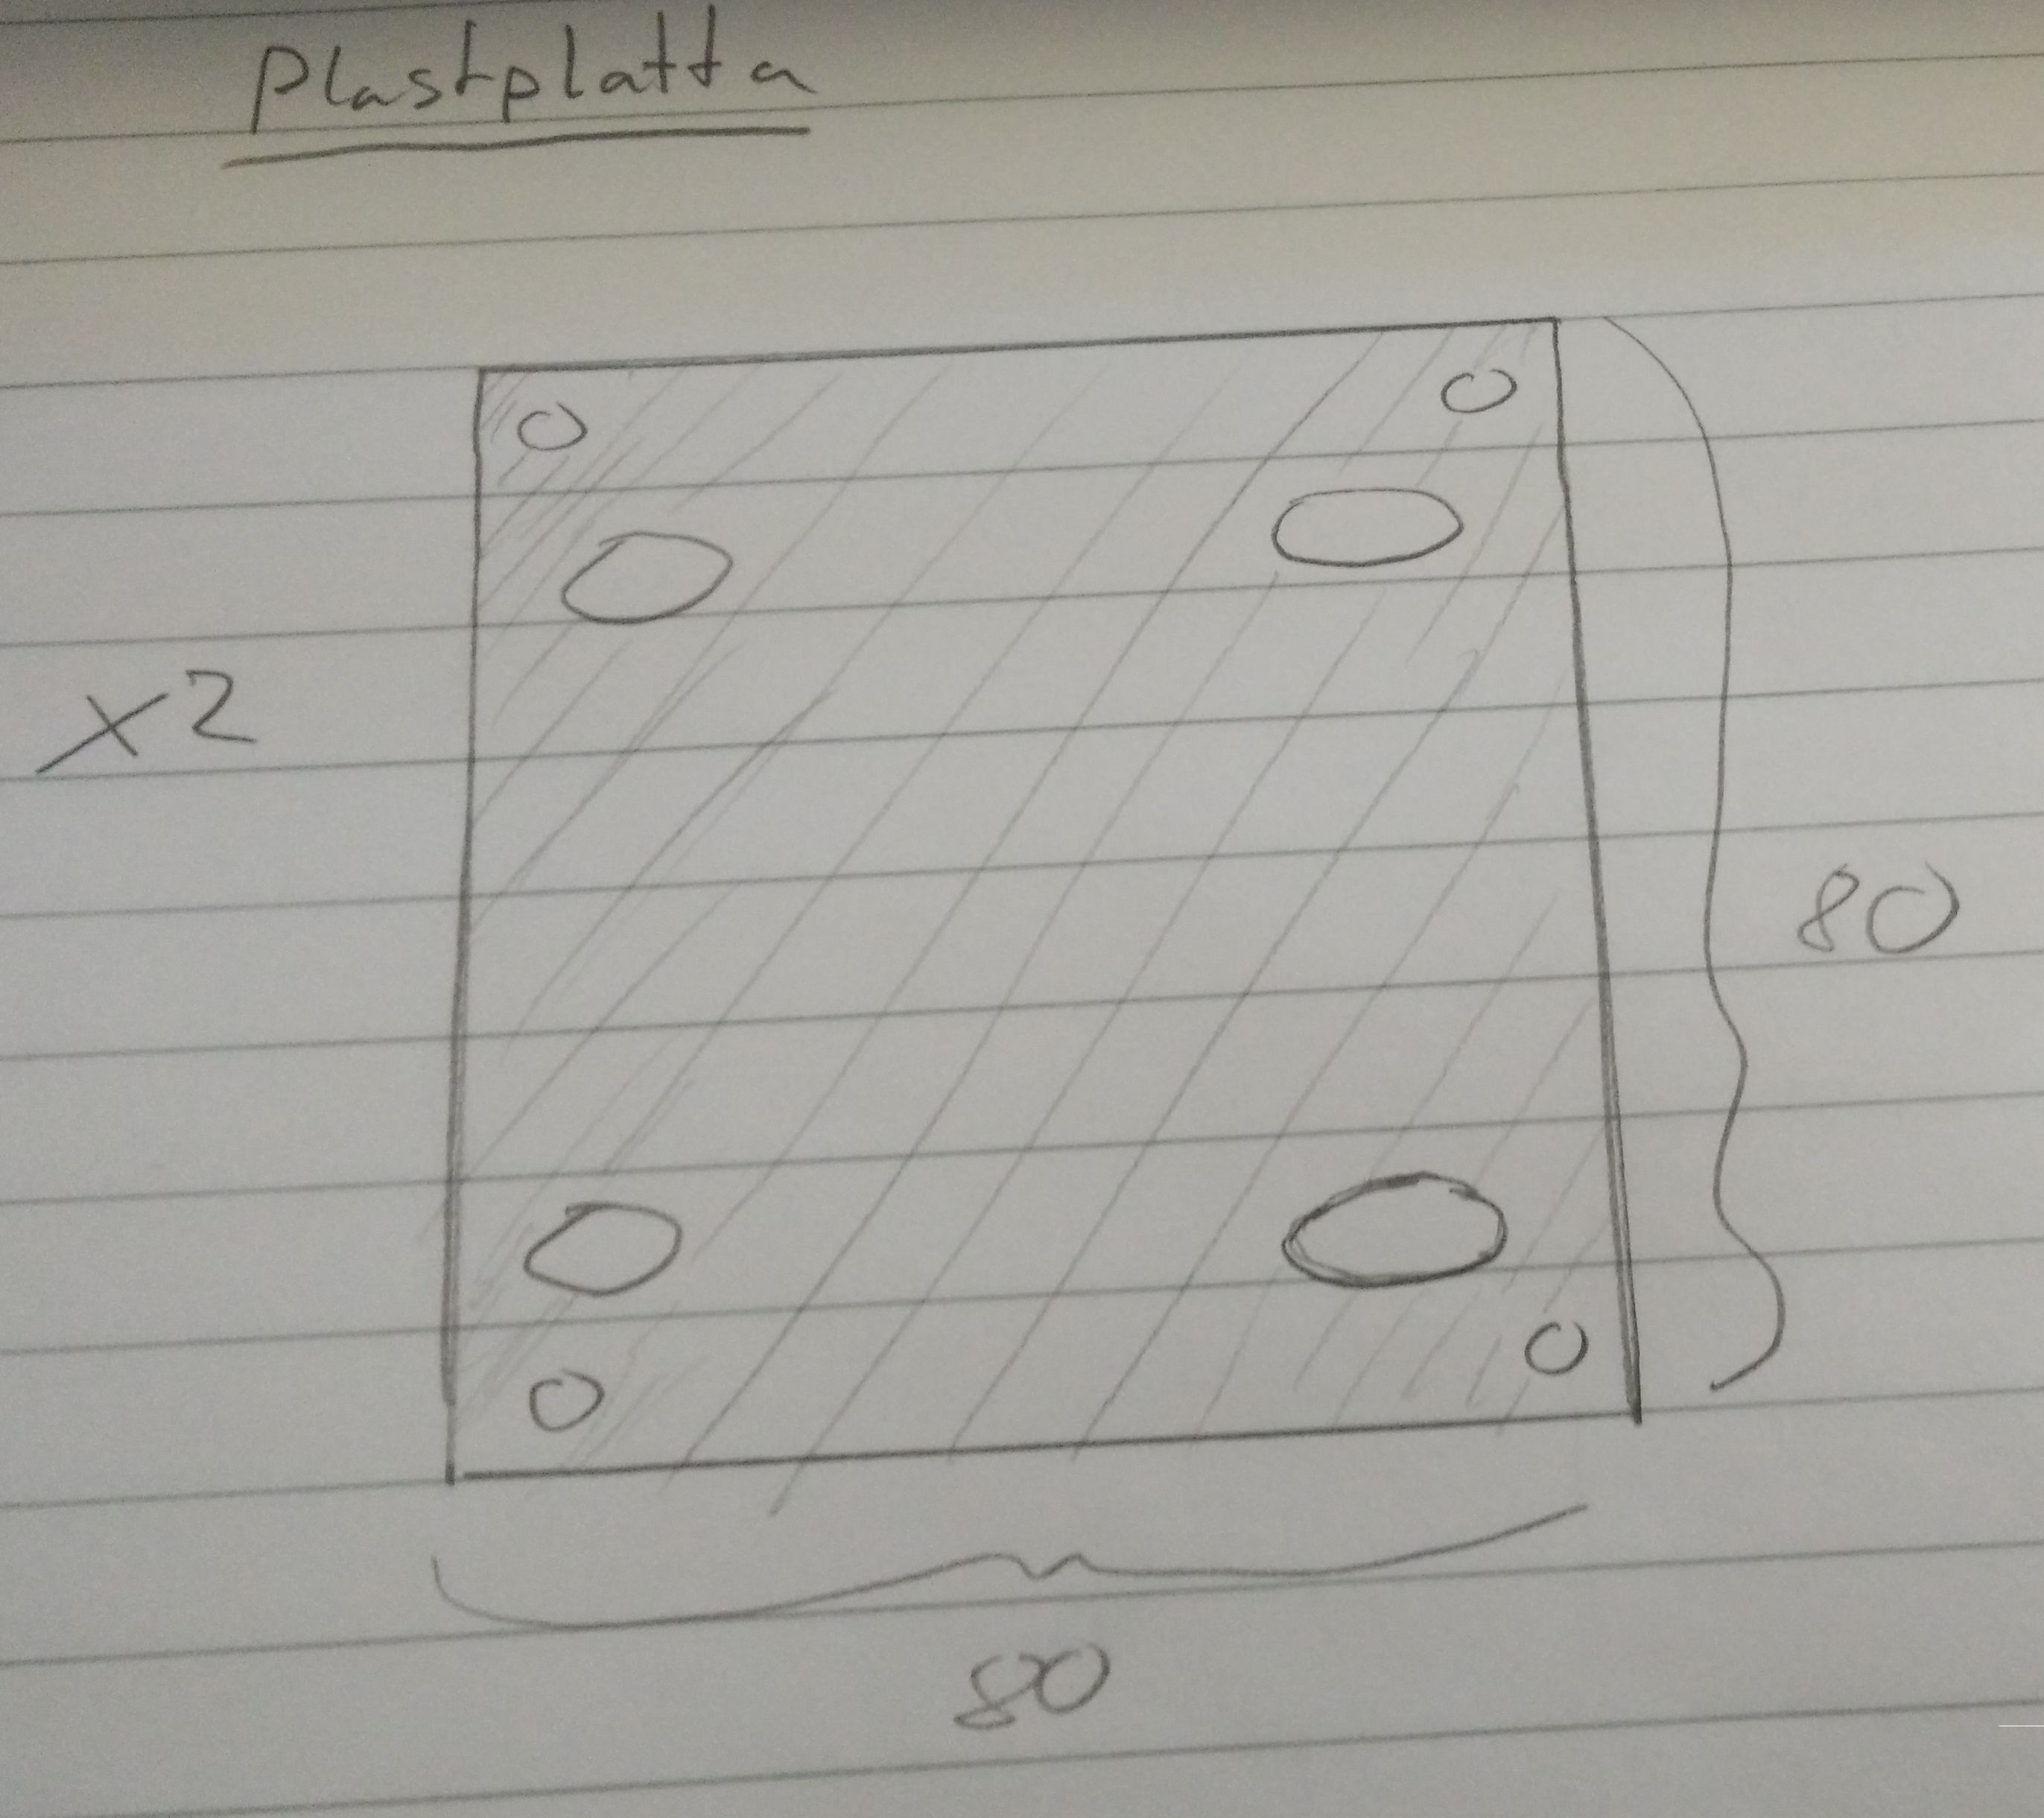 Plastplatta
x2
80
80